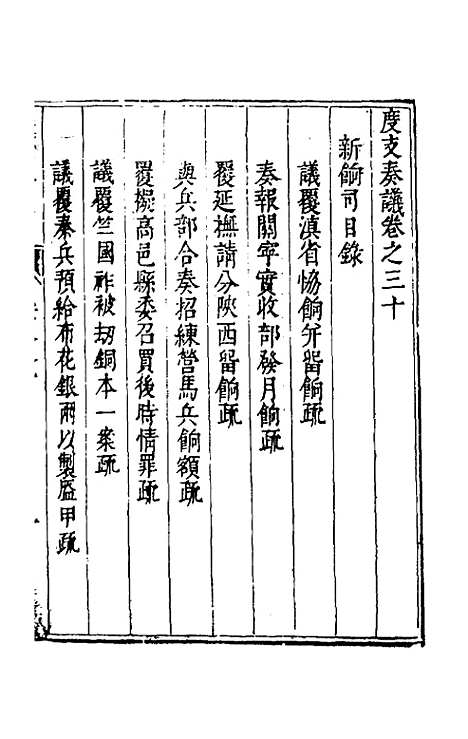 度支奏議卷之三十
新餉司目錄
議覆滇省協餉并留餉疏
奏報關寧實收部發月餉疏
覆延撫請分陝西留餉疏
與兵部合奏招練營馬兵餉額疏
覆擬高邑縣委召買後時情罪疏
議覆竺國祚被刼銅本一案疏
議覆秦兵預給布花銀兩以製盔甲疏